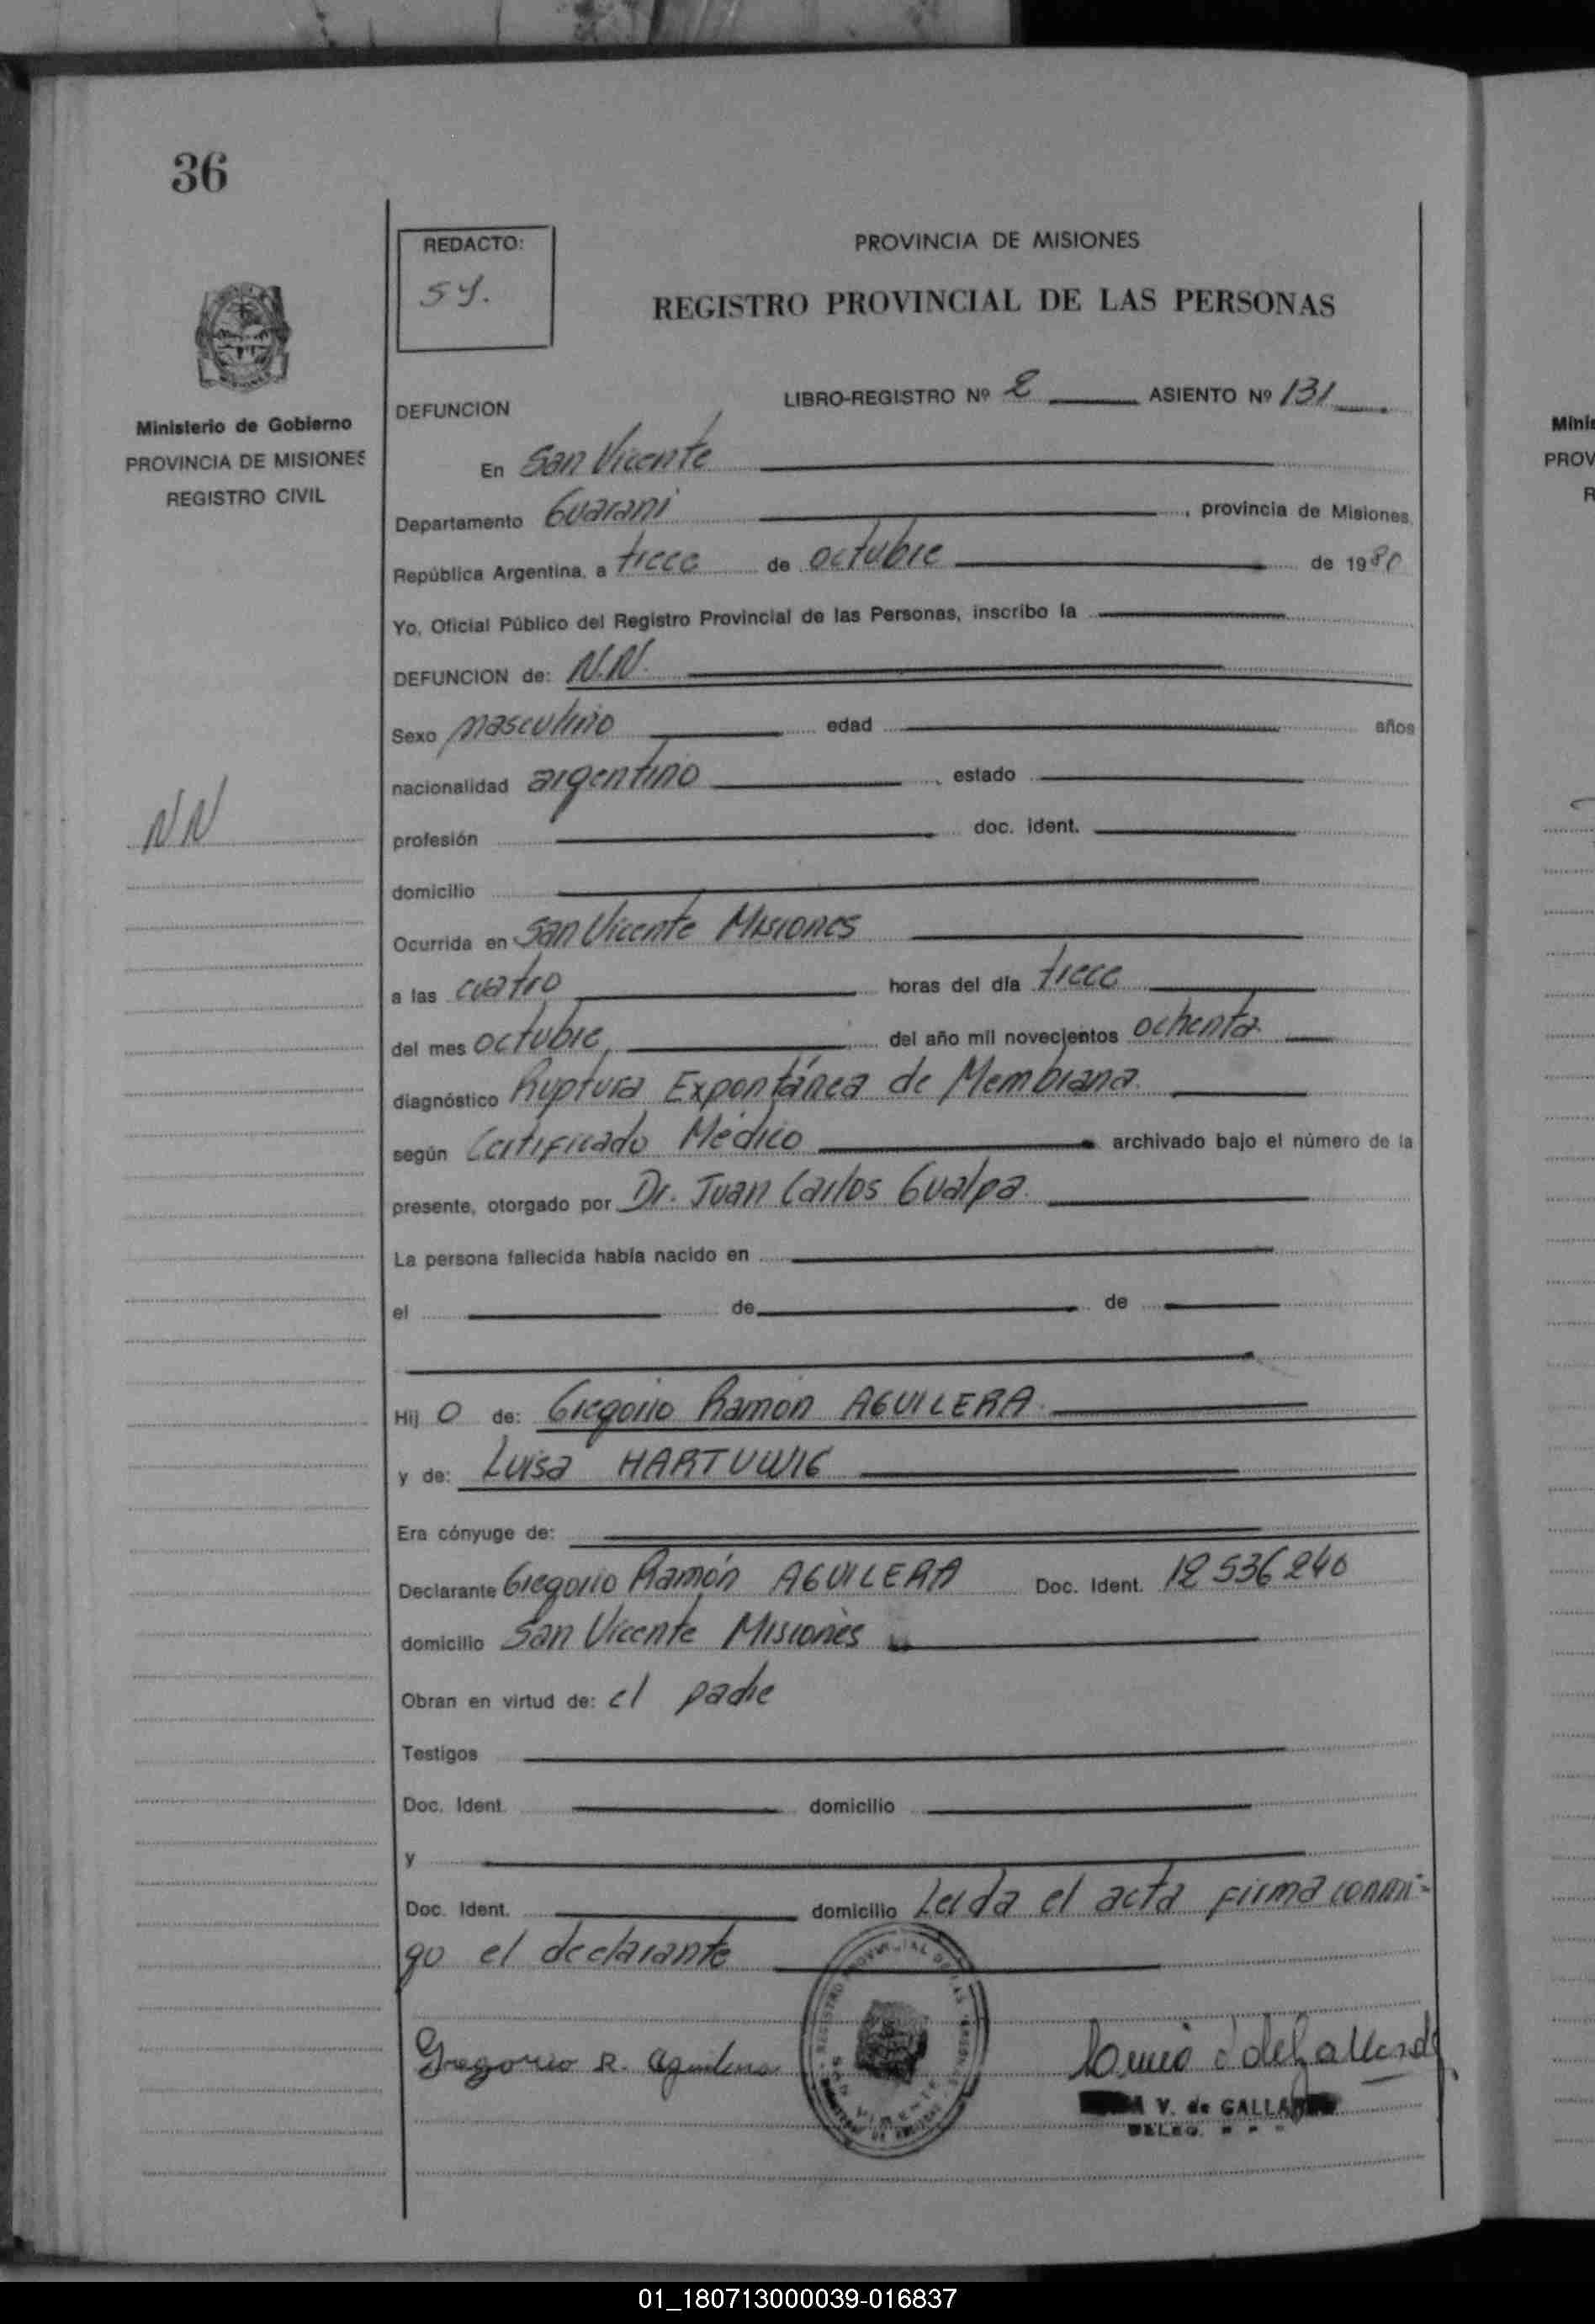 36
REDACTO:
SY.
PROVINCIA DE MISIONES
REGISTRO PROVINCIAL DE LAS PERSONAS
Ministerio de Gobierno
PROVINCIA DE MISIONES
REGISTRO CIVIL
DEFUNCION LIBRO-REGISTRO Nº 2 ASIENTO Nº 131
En San Vicente
Departamento Guarani, provincia de Misiones,
República Argentina, a trece de octubre de 1980
Yo, Oficial Público del Registro Provincial de las Personas, inscribo la
DEFUNCION de: N.N.
Sexo masculino edad años
nacionalidad argentino, estado
NN
profesión doc. ident.
domicilio
Ocurrida en San Vicente Misiones
a las cuatro horas del día trece
del mes octubre, del año mil novecientos ochenta
diagnóstico Ruptura Expontánea de Membrana
según Certificado Médico archivado bajo el número de la
presente, otorgado por Dr. Juan Carlos Gualpa
La persona fallecida había nacido en
el de de
Hij o de: Gregorio Ramon AGUILERA
y de: Luisa HARTUWIG
Era cónyuge de:
Declarante Gregorio Ramón AGUILERA Doc. Ident. 12 536 240
domicilio San Vicente Misiones
Obran en virtud de: el padre
Testigos
Doc. Ident. domicilio
y
Doc. Ident. domicilio Leida el acta firma conmi-
go el declarante
Gregorio R. Aguilera
V. de GALLA
Minis
PROV
R
01_180713000039-016837